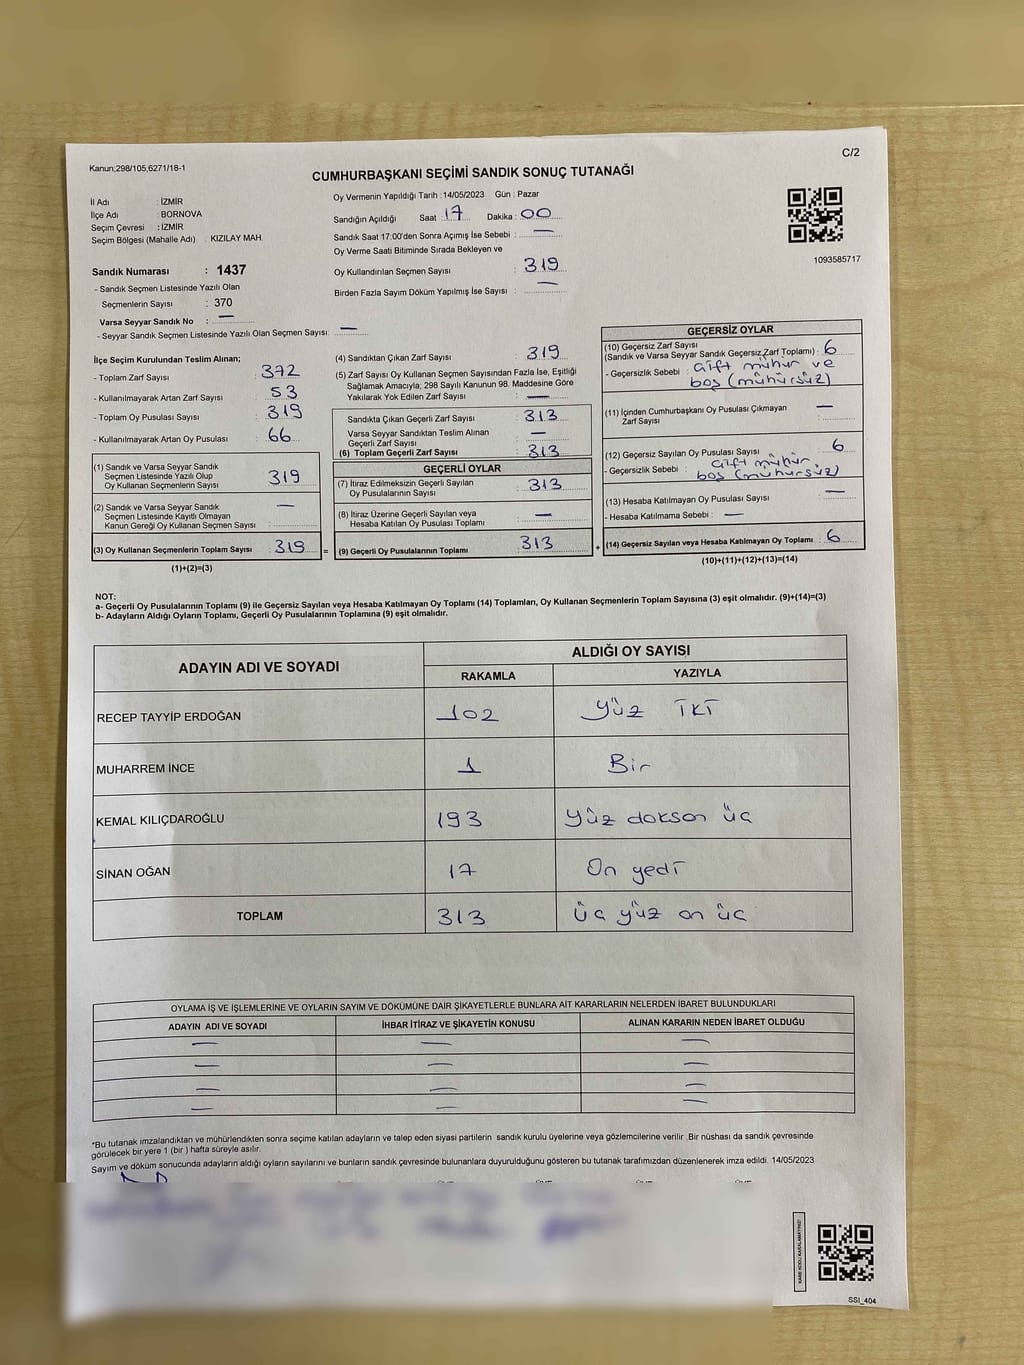 Kanun;298/105,6271/18-1
C/2
CUMHURBAŞKANI SEÇİMİ SANDIK SONUÇ TUTANAĞI
İl Adı : İZMİR
İlçe Adı : BORNOVA
Seçim Çevresi : İZMİR
Seçim Bölgesi (Mahalle Adı) : KIZILAY MAH.
Sandık Numarası : 1437
- Sandık Seçmen Listesinde Yazılı Olan
Seçmenlerin Sayısı : 370
Varsa Seyyar Sandık No : —
- Seyyar Sandık Seçmen Listesinde Yazılı Olan Seçmen Sayısı: —
Oy Vermenin Yapıldığı Tarih : 14/05/2023 Gün : Pazar
Sandığın Açıldığı Saat 17 Dakika : 00
Sandık Saat 17:00'den Sonra Açımış İse Sebebi : —
Oy Verme Saati Bitiminde Sırada Bekleyen ve
Oy Kullandırılan Seçmen Sayısı : 319
Birden Fazla Sayım Döküm Yapılmış İse Sayısı : —
1093585717
İlçe Seçim Kurulundan Teslim Alınan;
- Toplam Zarf Sayısı : 372
- Kullanılmayarak Artan Zarf Sayısı : 53
- Toplam Oy Pusulası Sayısı : 319
- Kullanılmayarak Artan Oy Pusulası : 66
(1) Sandık ve Varsa Seyyar Sandık
Seçmen Listesinde Yazılı Olup
Oy Kullanan Seçmenlerin Sayısı : 319
(2) Sandık ve Varsa Seyyar Sandık
Seçmen Listesinde Kayıtlı Olmayan
Kanun Gereği Oy Kullanan Seçmen Sayısı : —
(3) Oy Kullanan Seçmenlerin Toplam Sayısı : 319
(1)+(2)=(3)
=
(4) Sandıktan Çıkan Zarf Sayısı : 319
(5) Zarf Sayısı Oy Kullanan Seçmen Sayısından Fazla İse, Eşitliği
Sağlamak Amacıyla; 298 Sayılı Kanunun 98. Maddesine Göre
Yakılarak Yok Edilen Zarf Sayısı : —
Sandıkta Çıkan Geçerli Zarf Sayısı : 313
Varsa Seyyar Sandıktan Teslim Alınan
Geçerli Zarf Sayısı : —
(6) Toplam Geçerli Zarf Sayısı : 313
GEÇERLİ OYLAR
(7) İtiraz Edilmeksizin Geçerli Sayılan
Oy Pusulalarının Sayısı : 313
(8) İtiraz Üzerine Geçerli Sayılan veya
Hesaba Katılan Oy Pusulası Toplamı : —
(9) Geçerli Oy Pusulalarının Toplamı : 313
+
GEÇERSİZ OYLAR
(10) Geçersiz Zarf Sayısı
(Sandık ve Varsa Seyyar Sandık Geçersiz Zarf Toplamı) : 6
- Geçersizlik Sebebi : çift mühür ve
boş (mühürsüz)
(11) İçinden Cumhurbaşkanı Oy Pusulası Çıkmayan
Zarf Sayısı : —
(12) Geçersiz Sayılan Oy Pusulası Sayısı : 6
- Geçersizlik Sebebi : çift mühür
boş (mühürsüz)
(13) Hesaba Katılmayan Oy Pusulası Sayısı : —
- Hesaba Katılmama Sebebi : —
(14) Geçersiz Sayılan veya Hesaba Katılmayan Oy Toplamı : 6
(10)+(11)+(12)+(13)=(14)
NOT:
a- Geçerli Oy Pusulalarının Toplamı (9) ile Geçersiz Sayılan veya Hesaba Katılmayan Oy Toplamı (14) Toplamları, Oy Kullanan Seçmenlerin Toplam Sayısına (3) eşit olmalıdır. (9)+(14)=(3)
b- Adayların Aldığı Oyların Toplamı, Geçerli Oy Pusulalarının Toplamına (9) eşit olmalıdır.
ADAYIN ADI VE SOYADI
ALDIĞI OY SAYISI
RAKAMLA YAZIYLA
RECEP TAYYİP ERDOĞAN 102 Yüz İKİ
MUHARREM İNCE 1 Bir
KEMAL KILIÇDAROĞLU 193 Yüz doksan üç
SİNAN OĞAN 17 On yedi
TOPLAM 313 üç yüz on üç
OYLAMA İŞ VE İŞLEMLERİNE VE OYLARIN SAYIM VE DÖKÜMÜNE DAİR ŞİKAYETLERLE BUNLARA AİT KARARLARIN NELERDEN İBARET BULUNDUKLARI
ADAYIN ADI VE SOYADI İHBAR İTİRAZ VE ŞİKAYETİN KONUSU ALINAN KARARIN NEDEN İBARET OLDUĞU
— — —
— — —
— — —
— — —
*Bu tutanak imzalandıktan ve mühürlendikten sonra seçime katılan adayların ve talep eden siyasi partilerin sandık kurulu üyelerine veya gözlemcilerine verilir .Bir nüshası da sandık çevresinde
görülecek bir yere 1 (bir ) hafta süreyle asılır.
Sayım ve döküm sonucunda adayların aldığı oyların sayılarını ve bunların sandık çevresinde bulunanlara duyurulduğunu gösteren bu tutanak tarafımızdan düzenlenerek imza edildi. 14/05/2023
SSI_404